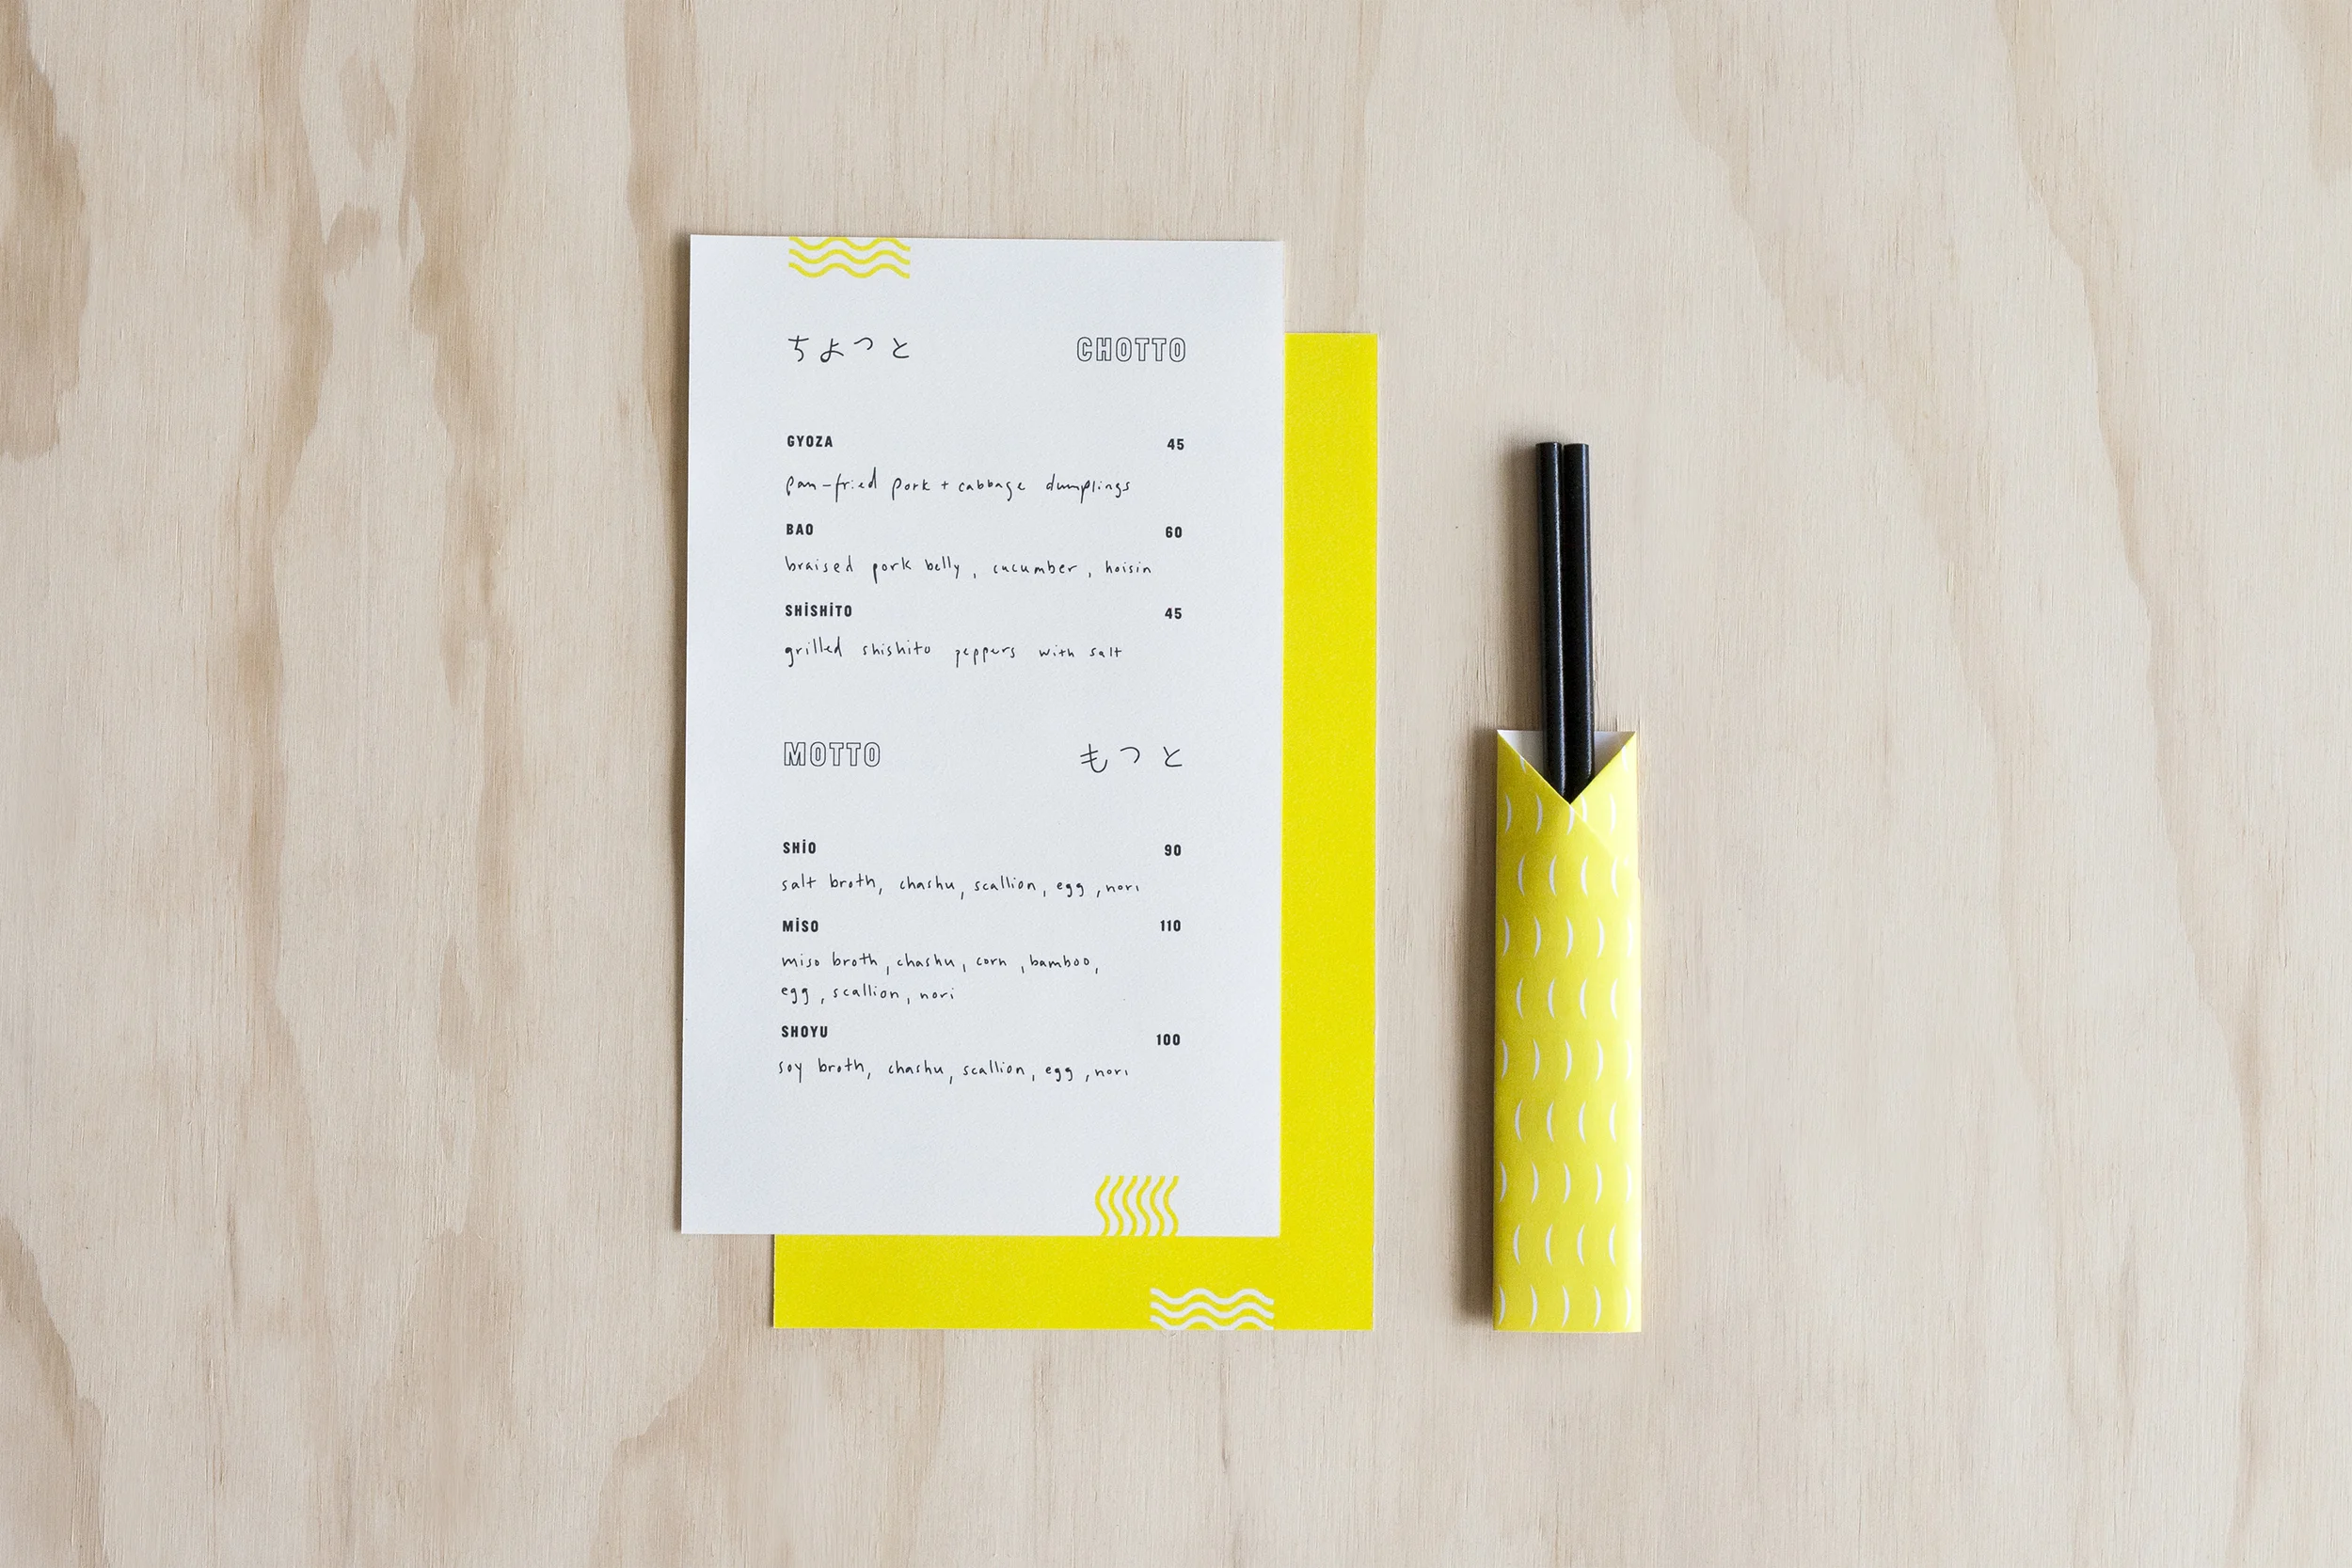 ちよつと CHOTTO
GYOZA 45
pan-fried pork + cabbage dumplings
BAO 60
braised pork belly, cucumber, hoisin
SHİSHİTO 45
grilled shishito peppers with salt
MOTTO もつと
SHİO 90
salt broth, chashu, scallion, egg, nori
MİSO 110
miso broth, chashu, corn, bamboo,
egg, scallion, nori
SHOYU 100
soy broth, chashu, scallion, egg, nori